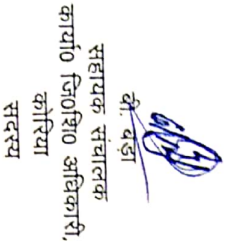 बी. बड़ा
सहायक संचालक
कार्या० जि०शि० अधिकारी,
कोरिया
सदस्य